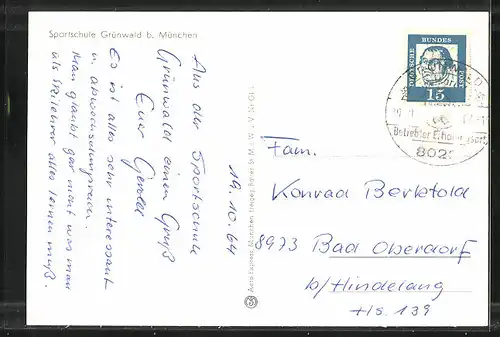 Sportschule Grünwald b. München
19.10.64
Aus der Sportschule
Grünwald einen Gruß
Euer Gerold
Es ist alles sehr interessant
u. abwechslungsreich.
Man glaubt gar nicht was man
als Skilehrer alles lernen muß.
DEUTSCHE
BUNDES
POST
15
Beliebter Erholungsort
802
Fam.
Konrad Berktold
8973 Bad Oberdorf
b/Hindelang
Hs. 139